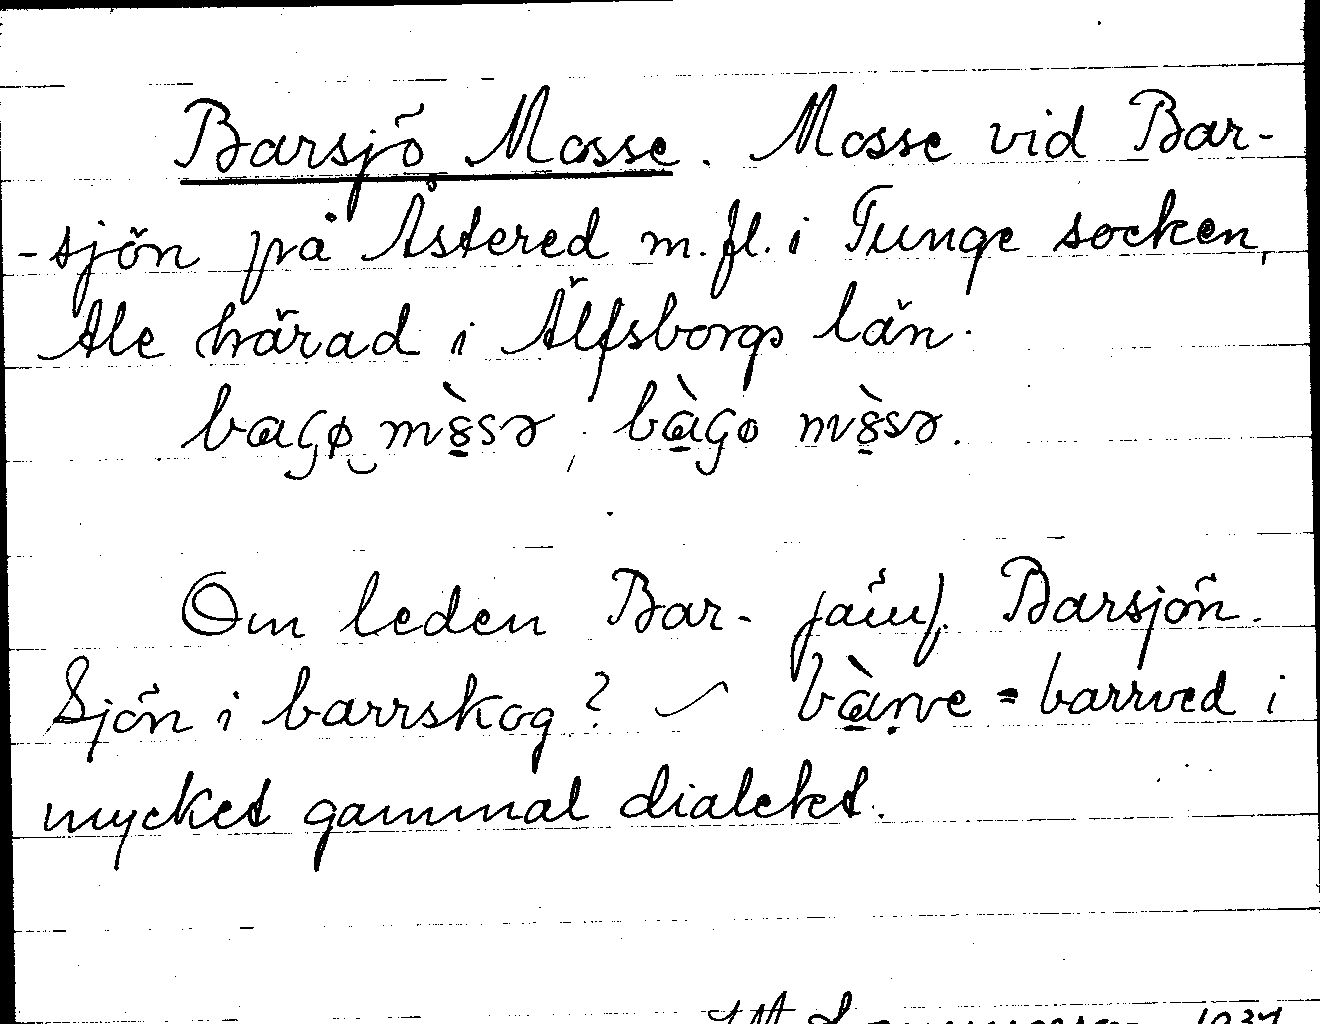 Barsjö Mosse. Mosse vid Bar-
-sjön på Åstered m.fl. i Tunge socken,
Ale härad i Älfsborgs län.
Om leden Bar- jämf. Barsjön.
Sjön i barrskog? ✓ = barrved i
mycket gammal dialekt.